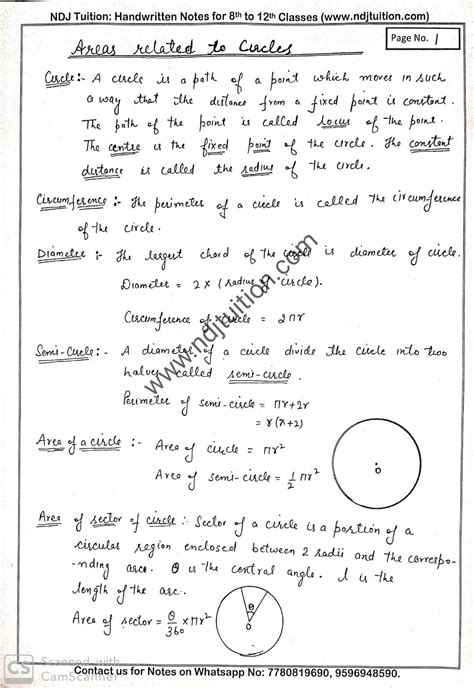 NDJ Tuition: Handwritten Notes for 8th to 12th Classes (www.ndjtuition.com)
Page No. 1
Areas related to Circles
Circle :- A circle is a path of a point which moves in such
a way that the distance from a fixed point is constant.
The path of the point is called locus of the point.
The centre is the fixed point of the circle. The constant
distance is called the radius of the circle.
Circumference :- The perimeter of a circle is called the circumference
of the circle.
Diameter :- The largest chord of the circle is diameter of circle.
Diameter = 2 × (radius of circle).
Circumference of circle = 2πr
Semi-Circle:- A diameter of a circle divide the circle into two
halves called semi-circle.
Perimeter of semi-circle = πr+2r
= r(π+2)
Area of a circle :- Area of circle = πr²
Area of semi-circle = 1/2 πr²
o
Area of sector of circle :- Sector of a circle is a portion of a
circular region enclosed between 2 radii and the correspo-
-nding arc. θ is the central angle. l is the
length of the arc.
Area of sector = θ/360 × πr²
θ
O
www.ndjtuition.com
CS Scanned with
CamScanner
Contact us for Notes on Whatsapp No: 7780819690, 9596948590.